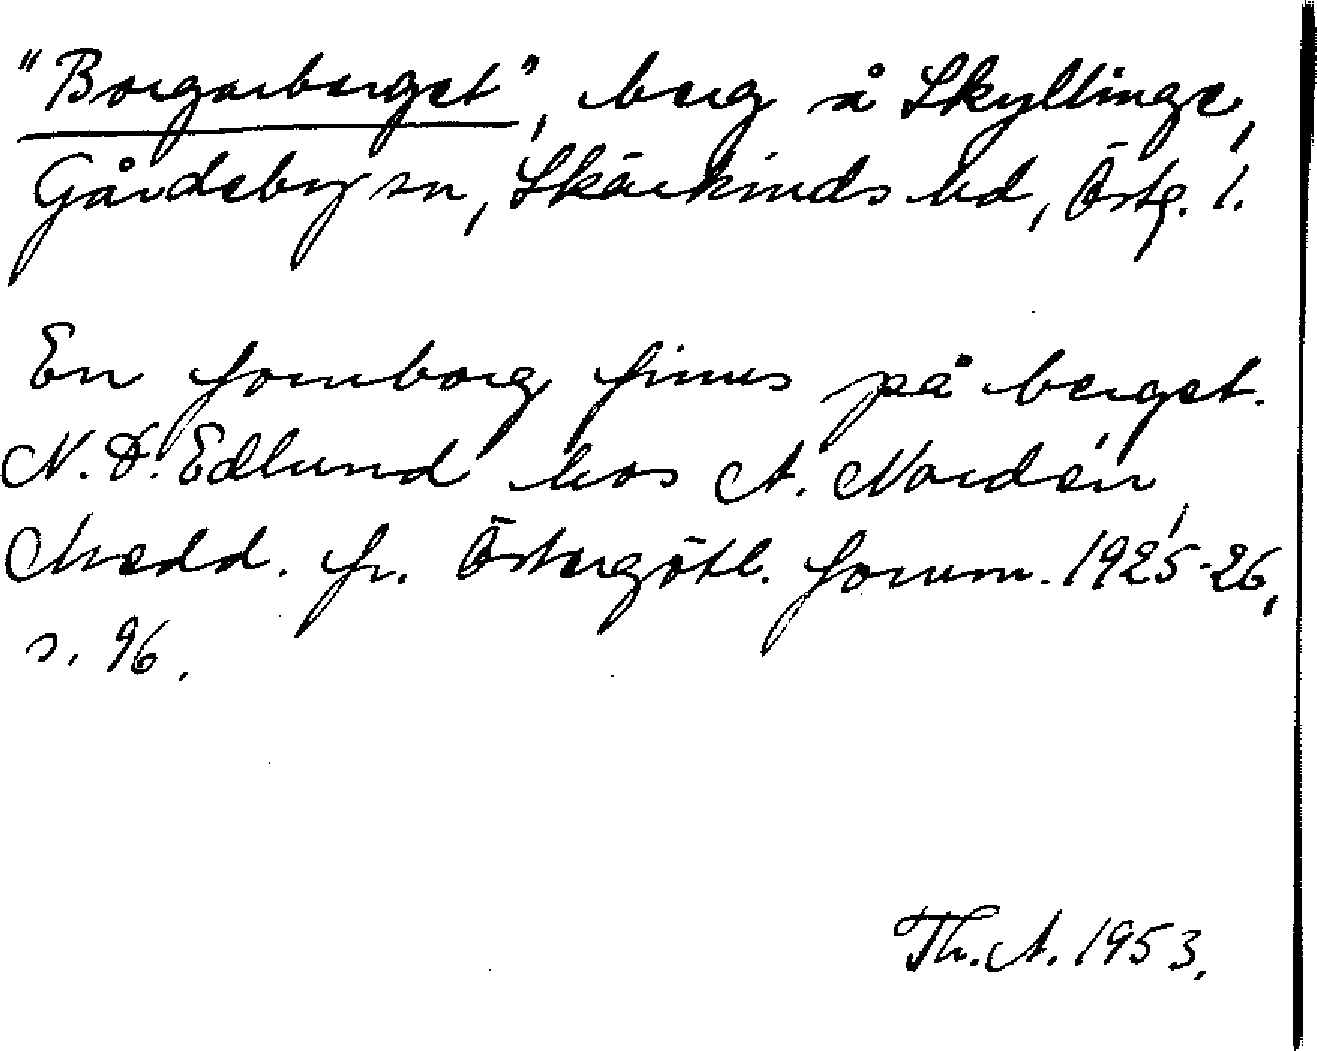 "Borgarberget", berg å Skyllinge,
Gårdeby sn, Skärkinds hd, Östg. l.
En fornborg finns på berget.
N. D. Edlund hos A. Nordén,
Medd. fr. Östergötl. fornm. 1925-26,
s. 96.
Th. A. 1953.